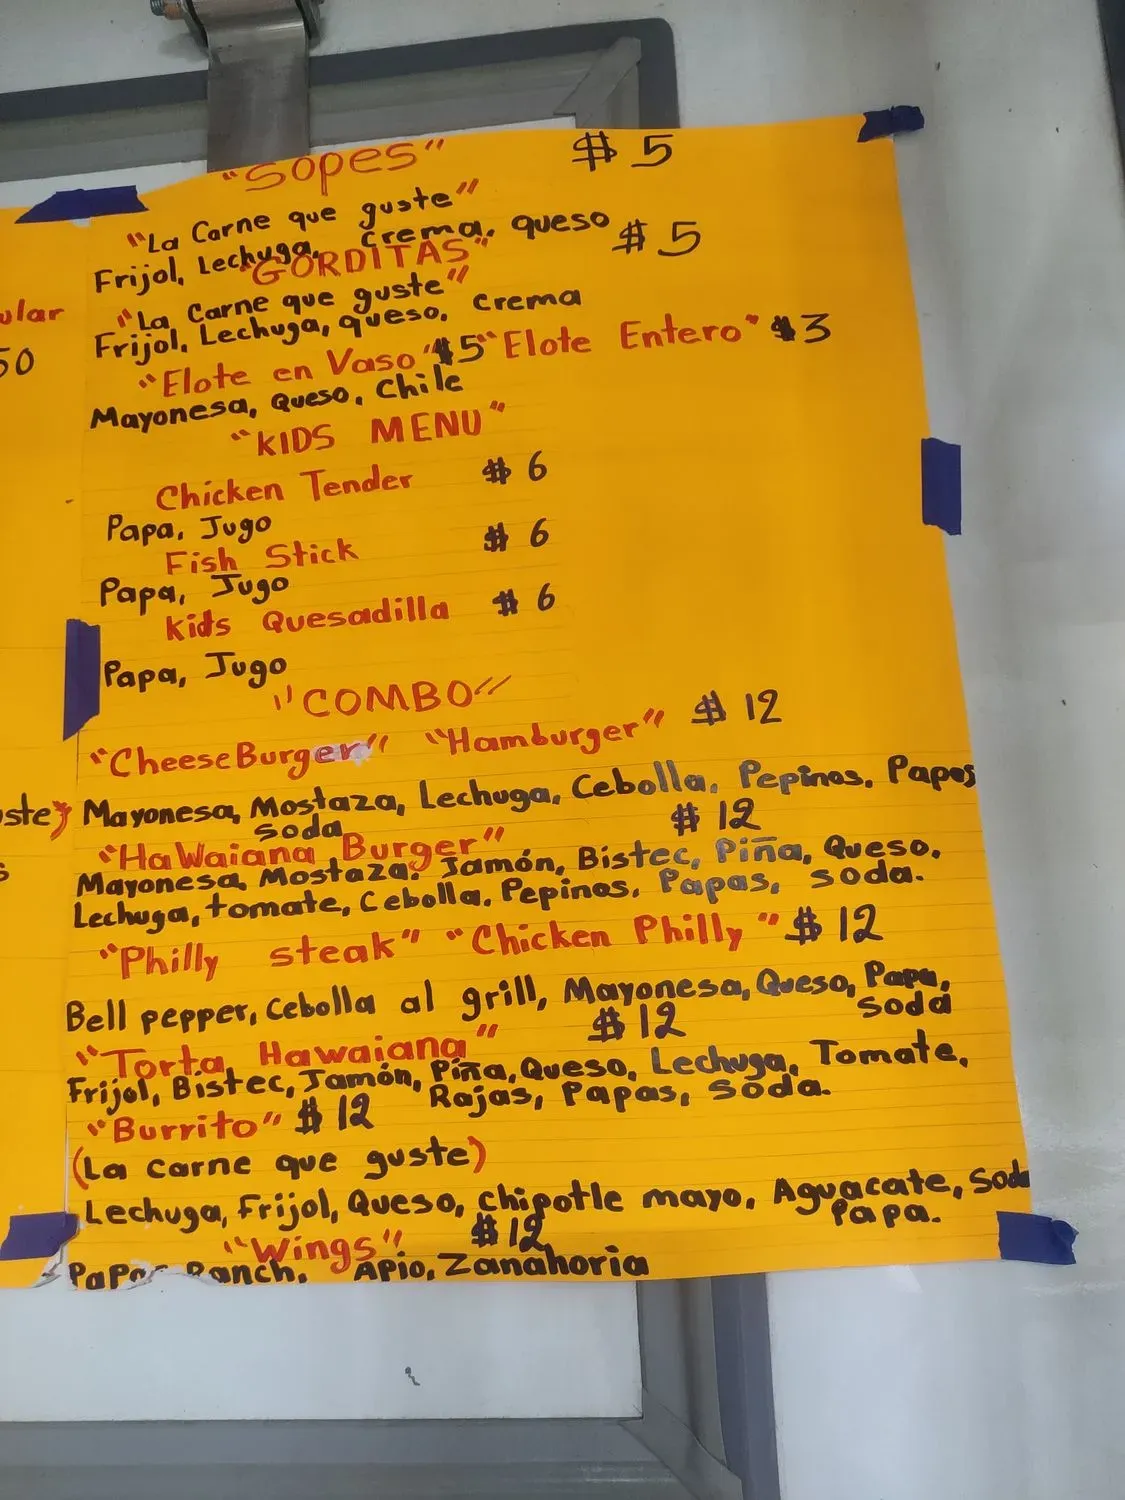 "Sopes" $5
"La Carne que guste"
Frijol, Lechuga, crema, queso
"GORDITAS" $5
"La Carne que guste"
Frijol, Lechuga, queso, crema
"Elote en Vaso" $5 "Elote Entero" $3
Mayonesa, Queso, Chile
"KIDS MENU"
Chicken Tender $6
Papa, Jugo
Fish Stick $6
Papa, Jugo
Kids Quesadilla $6
Papa, Jugo
"COMBO"
"CheeseBurger" "Hamburger" $12
Mayonesa, Mostaza, Lechuga, Cebolla, Pepinos, Papas
soda
"HaWaiana Burger" $12
Mayonesa, Mostaza, Jamón, Bistec, Piña, Queso,
Lechuga, tomate, Cebolla, Pepinos, Papas, soda.
"Philly steak" "Chicken Philly" $12
Bell pepper, Cebolla al grill, Mayonesa, Queso, Papa,
soda
"Torta Hawaiana" $12
Frijol, Bistec, Jamón, Piña, Queso, Lechuga, Tomate,
Rajas, Papas, soda.
"Burrito" $12
(La carne que guste)
Lechuga, Frijol, Queso, chipotle mayo, Aguacate, Soda
Papa.
"Wings" $12
Ranch, Apio, Zanahoria
ular
50